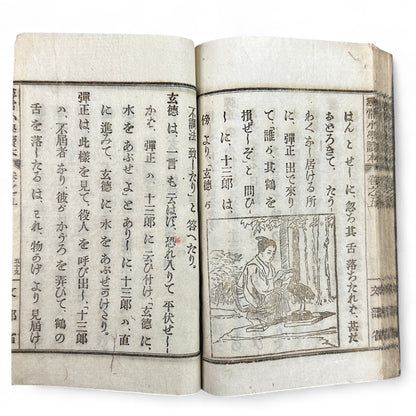 尋常小學讀本卷之五
文部省
はんとせしに、忽ち其舌落ちたれば、甚だ
おどろきて、たう
わくし居ける所
に、彈正出で來り
て、誰ぞ其鶴を
損ぜしぞと問ひ
しに、十三郎は、
傍より、玄德が
不調法致したりと答へたり。
玄德は、一言も云はず、恐れ入りて平伏せし
かば、彈正は、十三郎に云ひ付け、玄德に、
水をあぶせよとありしに、十三郎は、直
に進みて、玄德に、水をあぶせけり。
彈正は、此樣を見て、役人を呼び出し、十三郎
は、不屆者なり、彼がかうろを弄びて、鶴の
舌を落したるは、われ、物かげより見屆け
文部省